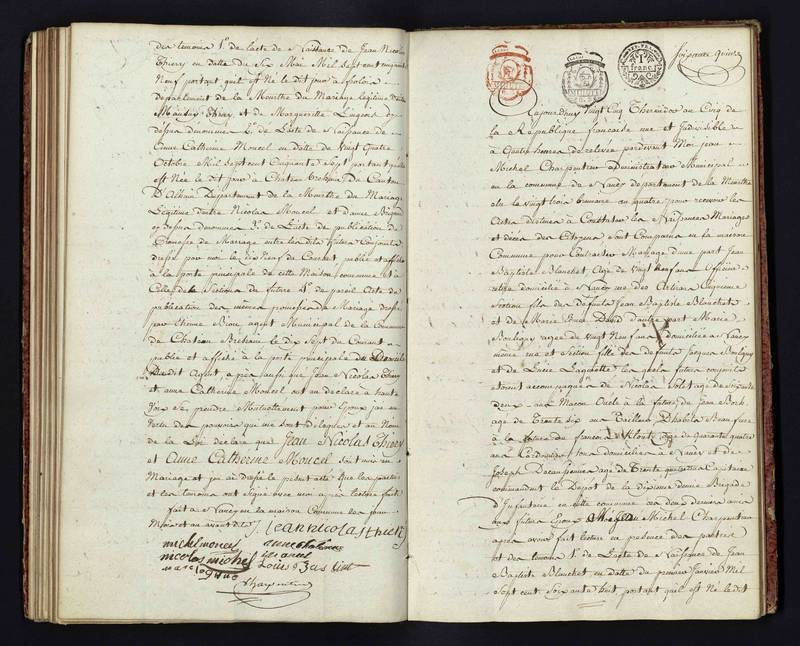 des temoins 1.º de l'acte de Naissance de Jean Nicolas
Thiery en datte du Six Mai Mil Sept cent cinquante
Neuf portant qu'il est Né le dit jour à
département de la Meurthe du Mariage légitime d'entre
Thiery et de Margueritte
dénommés 2.º de L'acte de Naissance de
Anne Catherine Moucel en datte du Vingt Quatre
Octobre Mil Sept cent Cinquante Sept portant qu'elle
est Née le dit jour à Chateau Brehain du Canton
D'Albain Département de la Meurthe du Mariage
Légitime d'entre Nicolas Moucel et d'anne
dénommés 3.º de L'acte de publication de
Promesse de Mariage entre les dits futurs Conjoints
dressé par moi le dix Neuf du Courant publié et affiché
à la porte principale de cette Maison commune et à
Celle de la Section du future 4.º de pareil Acte de
publication des mêmes promesses de Mariage dressé
par Etienne agent Municipal de la Commune
de Chateau Brehain le dix Sept du Courant
publié et affiché à la porte principale du
dit Agent, après aussi que Jean Nicolas Thiery
et anne Catherine Moucel ont eu déclaré à haute
Voix se prendre Mutuellement pour Epoux j'ai en
Vertu des pouvoirs qui me sont délégués et au Nom
de la Loi déclaré que Jean Nicolas Thiery
et Anne Catherine Moucel sont unis en
Mariage et j'ai dressé le présent acte que les parties
et les temoins ont signé avec moi après lecture faite
fait à Nancy en la maison Commune les jour
Mois et an avant dits / jean nicolas thiery
michel moucel anne Catherine
nicolas michel moucel
Charpentier
1 franc
Soixante quinze
Cejourd'huy Vingt Cinq Thermidor au Cinq de
la République française une et Indivisible à
Quatre heures de relevée pardevant Moi Jean
Michel Charpentier administrateur Municipal
en la commune de Nancy département de la Meurthe
élu le Vingt trois brumaire an quatre pour recevoir les
Actes destinés à Constater les Naissances Mariages
et décès des Citoyens, sont Comparus en la maison
Commune pour Contracter Mariage d'une part Jean
Baptiste Blanchet Agé de Vingt Neuf ans Officier
retiré domicilié à Nancy rue des Artisans Cinquieme
Section fils des défunts Jean Baptiste Blanchet
et de Marie Anne David d'autre part Marie
Bouligny agée de Vingt Neuf ans domiciliée à Nancy
même rue et Section fille des défunts Jacques Bouligny
et de Lucie Lagoutte les quels futurs conjoints
étoient accompagnés de Nicolas agé de Soixante
deux ans Macon Oncle à la future, de Jean
agé de Trente Six ans Tailleur D'habits Beaufrere
à la future de francois agé de Quarante quatre
ans Cordonnier tous domiciliés à Nancy et de
Joseph agé de Trente quatre ans Capitaine
commandant le Depot de la dixieme demie Brigade
D'Infanterie en cette commune ces deux derniers amis
aux futurs Epoux Michel Charpentier
après avoir fait lecture en présence des parties
et des temoins 1.º de L'acte de Naissance de Jean
Baptiste Blanchet en datte du premier Janvier Mil
Sept cent Soixante huit, portant qu'il est Né le dit